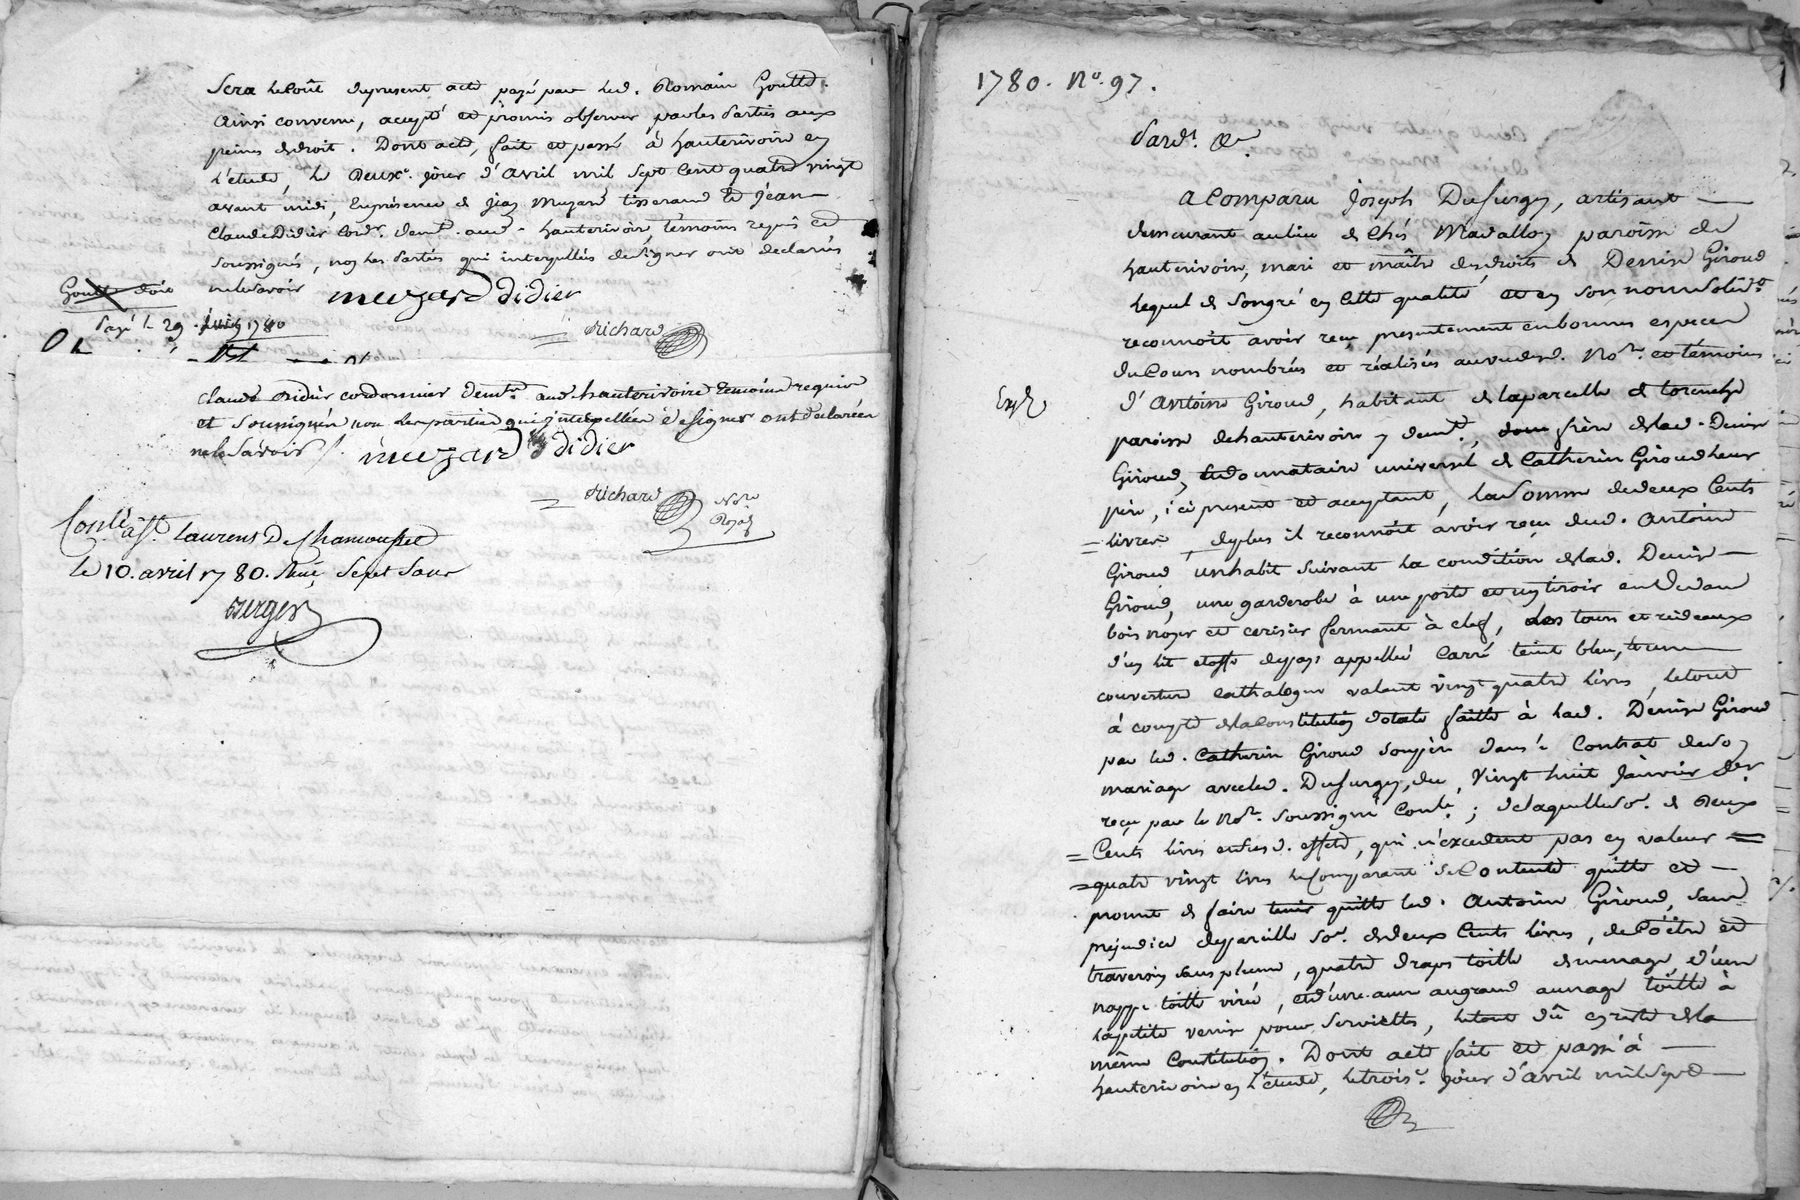 Sera le Coût du present acte payé par led. Romain Goutte.
Ainsi convenu, accepté et promis observer par les parties aux
peines de droit. Dont acte, fait et passé à hauterivoire en
l'etude, le Deuxe. jour d'avril mil sept Cent quatre vingt
avant midi, En présence de Jean Muzard tisserand et Jean
Claude Didier Cordr. demt. aud. hauterivoire, temoins requis et
soussignés, non les parties qui interpellés de signer ont declarés
ne le savoir muzard didier
Goutte doit
payé le 29 juin 1780
Richard
Claude Didier cordonnier demt. aud. hauterivoire temoins requis
et soussignés non les parties qui interpellées de signer ont declarées
ne le Savoir /. muzard didier
Richard Nore
Royal
Conlé. a St. Laurens De Chamousset
le 10. avril 1780. Reçu Sept Sous
Berger
1780. No. 97.
Pardt. &c.
A Comparu Joseph Dufurgey, artisant
demeurant au lieu de Chés Mavallon paroisse de
hauterivoire, mari et maître des droits de Denise Giroud
lequel de son gré en cette qualité et en son nom solide.
reconnoit avoir reçu presentement en bonnes especes
du Cours nombrés et réalisés au vu dud. Nore. et témoins
Exp.
d'Antoine Giroud, habitant de la parcelle de torenche
paroisse de hauterivoire y demt., frère de lad. Denise
Giroud, donataire universel de Catherin Giroud leur
père, ici present et acceptant, la somme de deux Cents
livres, de plus il reconnoît avoir reçu dud. Antoine
Giroud un habit suivant la condition de lad. Denise
Giroud, une garderobe à une porte et un tiroir au devant
bois noyer et cerisier fermant à clef, les tours et rideaux
d'un lit etoffe de pays appellée Carré teint bleu, et une
couverture Cathalogne valant vingt quatre livres, le tout
à compte de la Constitution dotale faitte à lad. Denise Giroud
par led. Catherin Giroud son père dans le Contrat de son
mariage avec led. Dufurgey, du vingt huit Janvier der.
reçu par le Nore. soussigné Conlé.; de laquelle so. de Deux
Cents livres ensemb. effets, qui n'excedent pas en valeur
quatre vingt livres le Comparant se Contente quitte et
promet de faire tenir quitte led. Antoine Giroud, sans
prejudice de pareille soe. de deux Cents livres, de Coëtre et
traversin sans plume, quatre draps toille de menage, d'une
nappe toille virée, et d'une aune au grand aunage toille à
la petite venise pour serviettes, le tout dû en reste de la
même Constitution. Dont acte fait et passé à
hauterivoire en l'étude, le troise. jour d'avril mil sept